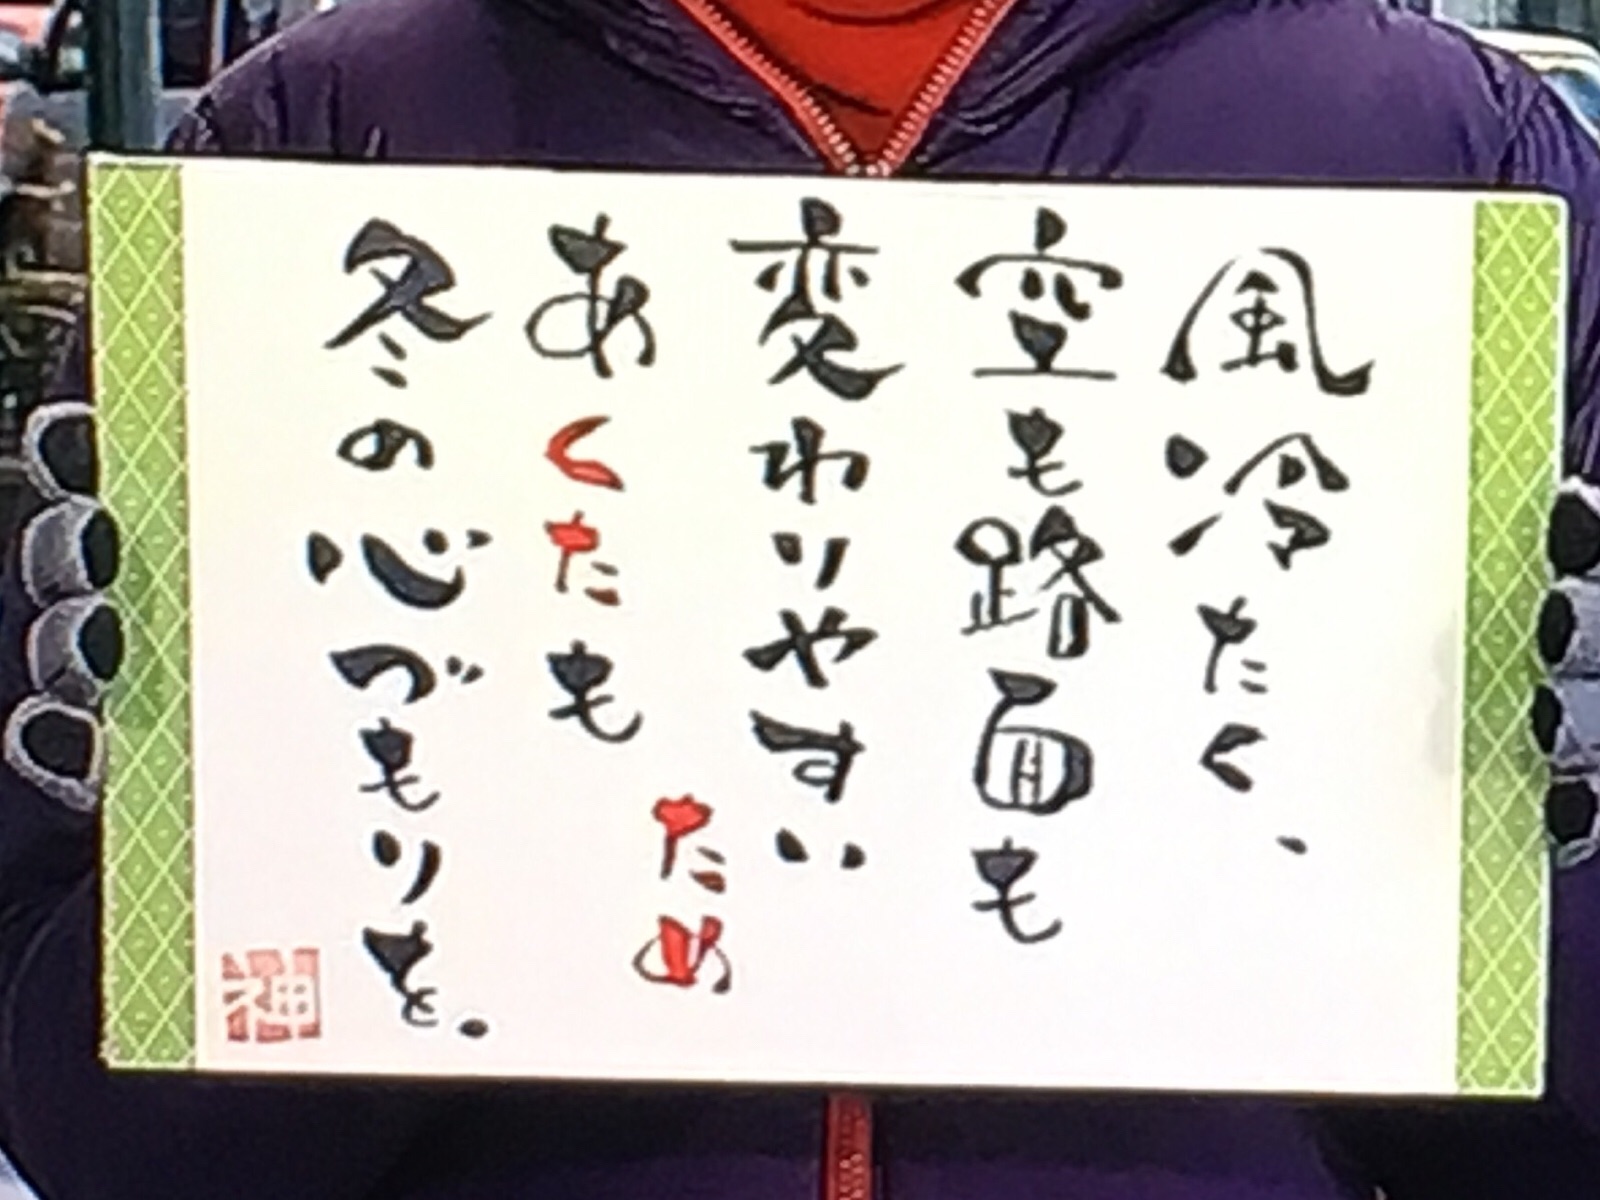 風冷たく、
空も路面も
変わりやすい
ため
あくたも
冬の心づもりを。
神